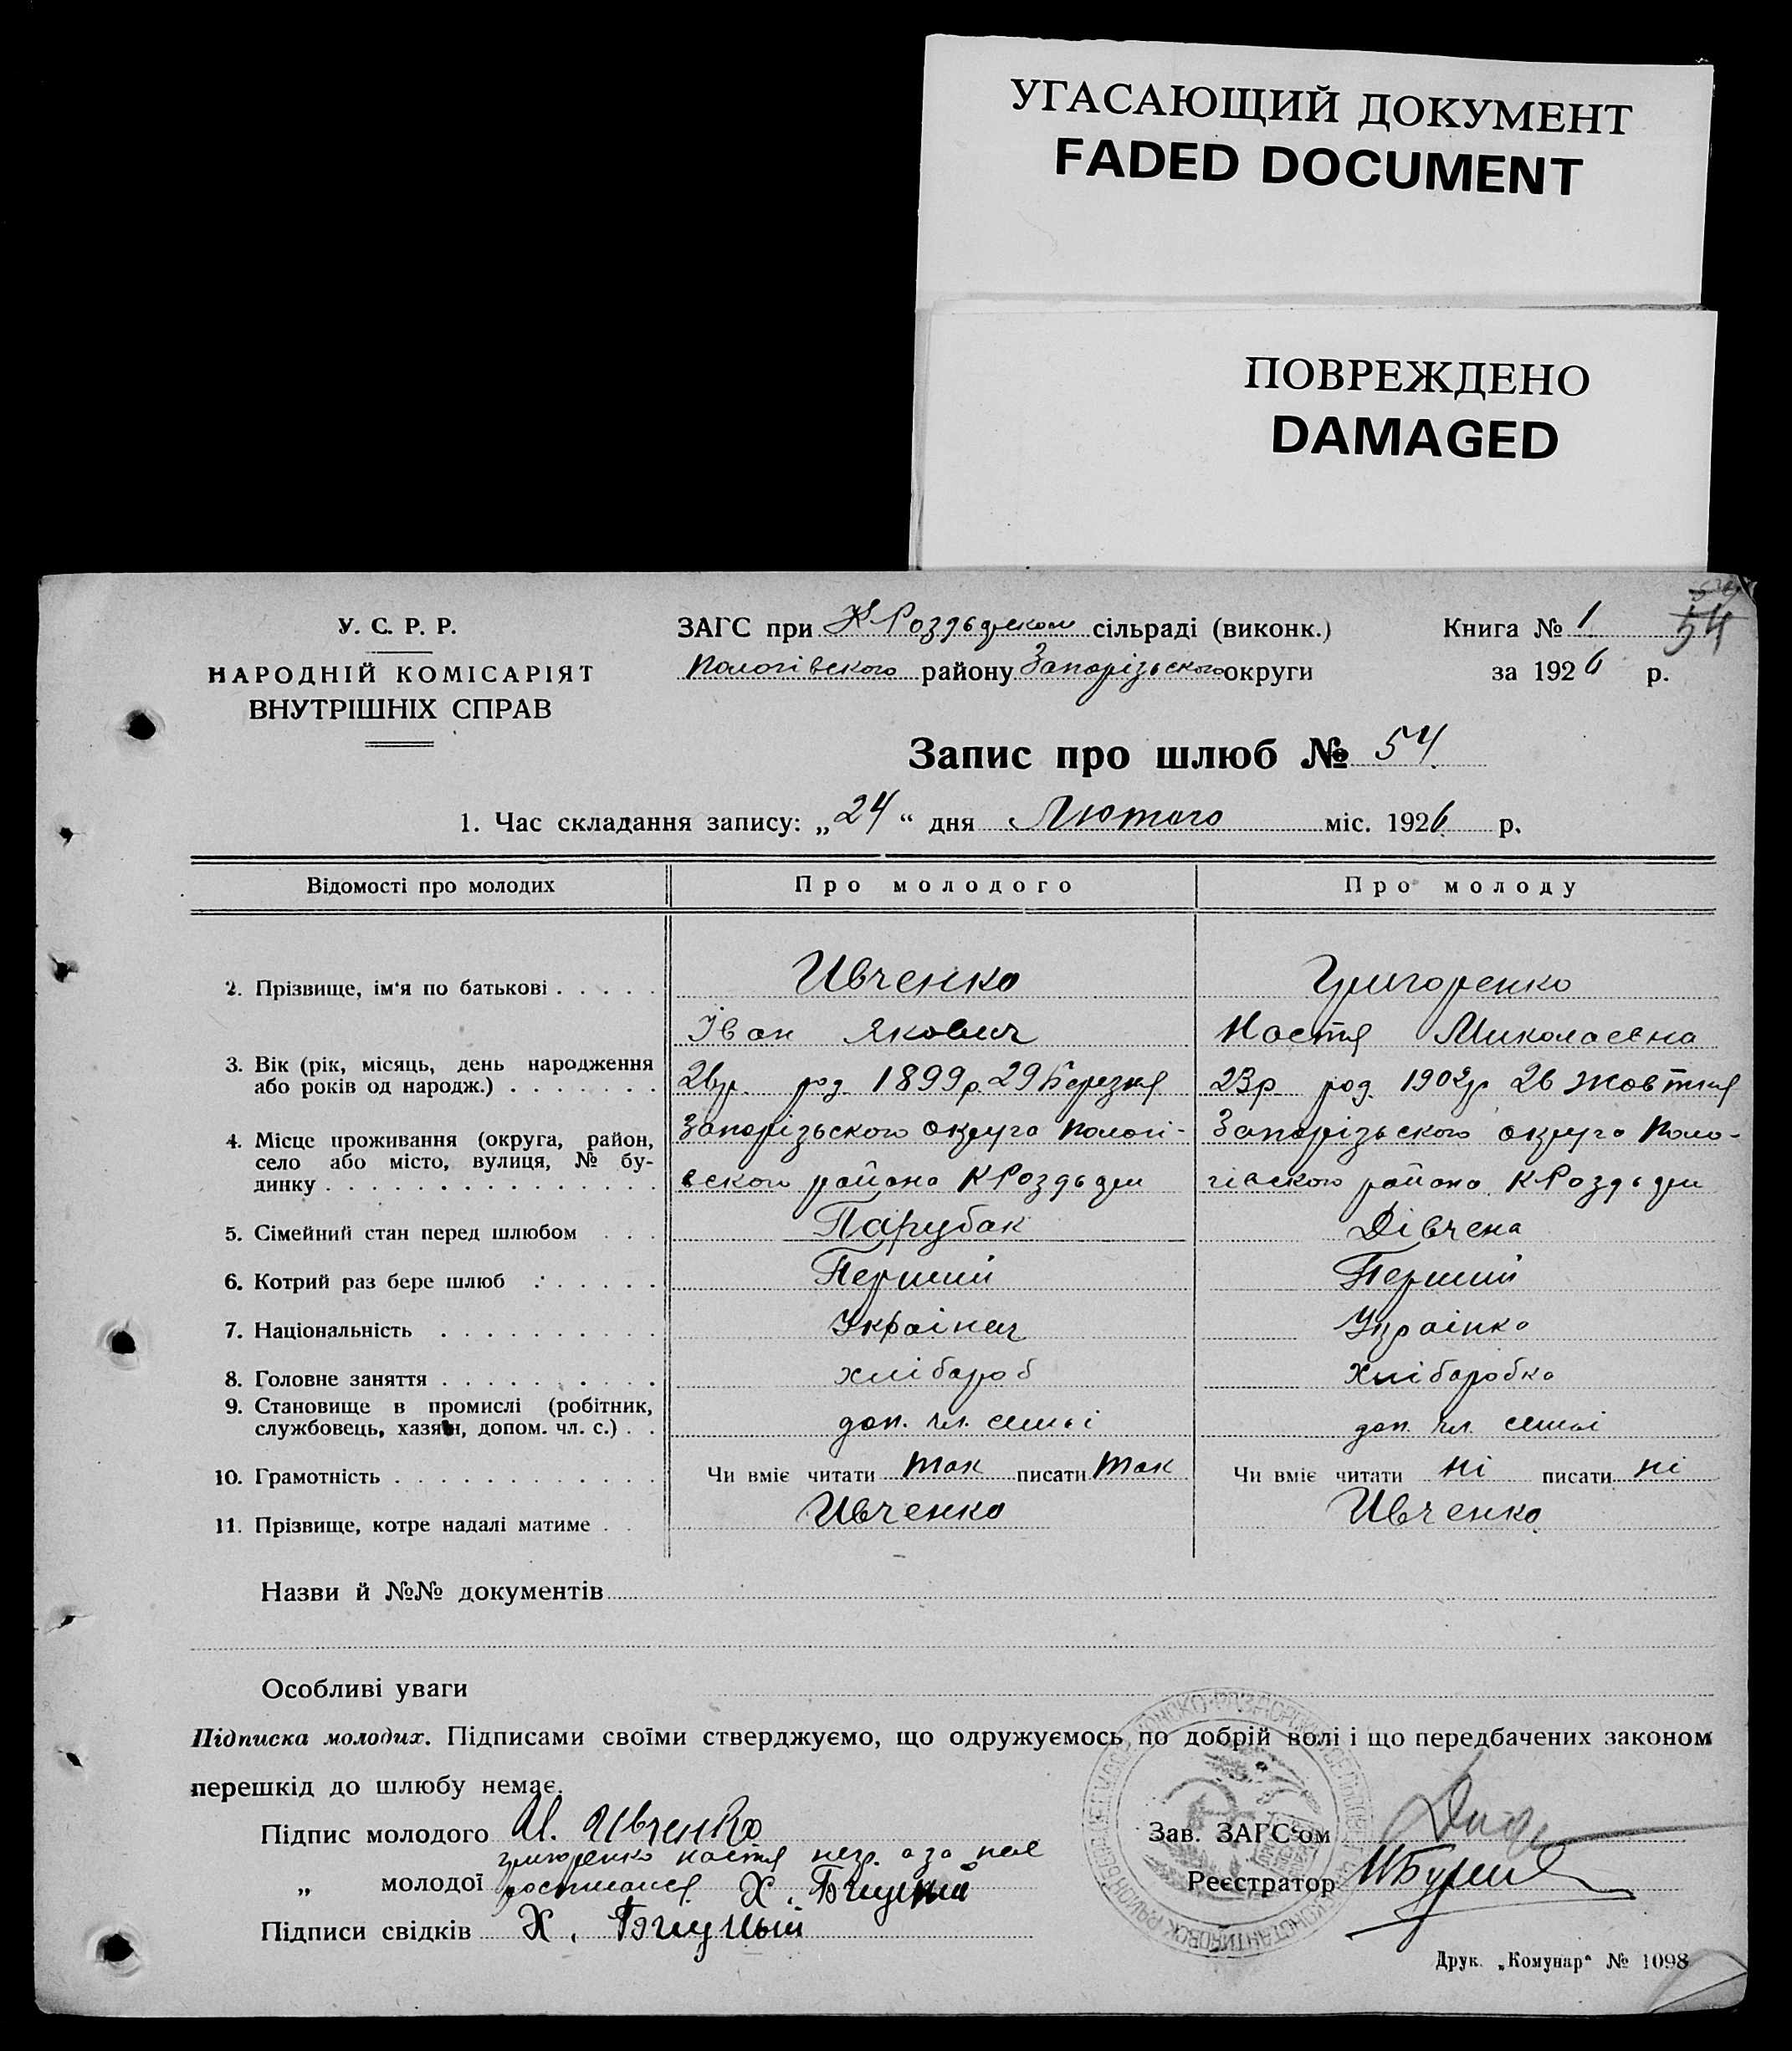 УГАСАЮЩИЙ ДОКУМЕНТ
FADED DOCUMENT
ПОВРЕЖДЕНО
DAMAGED
54
У. С. Р. Р.
НАРОДНІЙ КОМІСАРІЯТ
ВНУТРІШНІХ СПРАВ
ЗАГС при сільраді (виконк.)
Пологівского району Запорізьского округи
Книга № 1
за 1926 р.
Запис про шлюб № 54
1. Час складання запису: „24“ дня Лютого міс. 1926 р.
Відомості про молодих Про молодого Про молоду
2. Прізвище, ім'я по батькові Ивченко Григоренко
Іван Якович Настя Миколаевна
3. Вік (рік, місяць, день народження
або років од народж.) 26р. род. 1899р. 29 Березня 23р. род. 1902р 26 Жовтня
4. Місце проживання (округа, район,
село або місто, вулиця, № бу-
динку
Запорізьского округа Пологі-
вского района К Роздьдри
Запорізьского округа Поло-
гівского района К Роздьдри
5. Сімейний стан перед шлюбом Парубак Дівчена
6. Котрий раз бере шлюб Перший Перший
7. Національність Українец Українка
8. Головне заняття хлібароб Хлібаробка
9. Становище в промислі (робітник,
службовець, хазяїн, допом. чл. с.) доп. чл. симьі доп. чл. симьі
10. Грамотність Чи вміє читати так писати так Чи вміє читати ні писати ні
11. Прізвище, котре надалі матиме Ивченко Ивченко
Назви й №№ документів
Особливі уваги
Підписка молодих. Підписами своїми стверджуємо, що одружуємось по добрій волі і що передбачених законом
перешкід до шлюбу немає.
Підпис молодого И. Ивченко
Григоренко Настя негр. а за нее
„ молодої росписався Х.
Підписи свідків Х.
Зав. ЗАГС'ом
Реєстратор
Друк. „Комунар“ № 1098